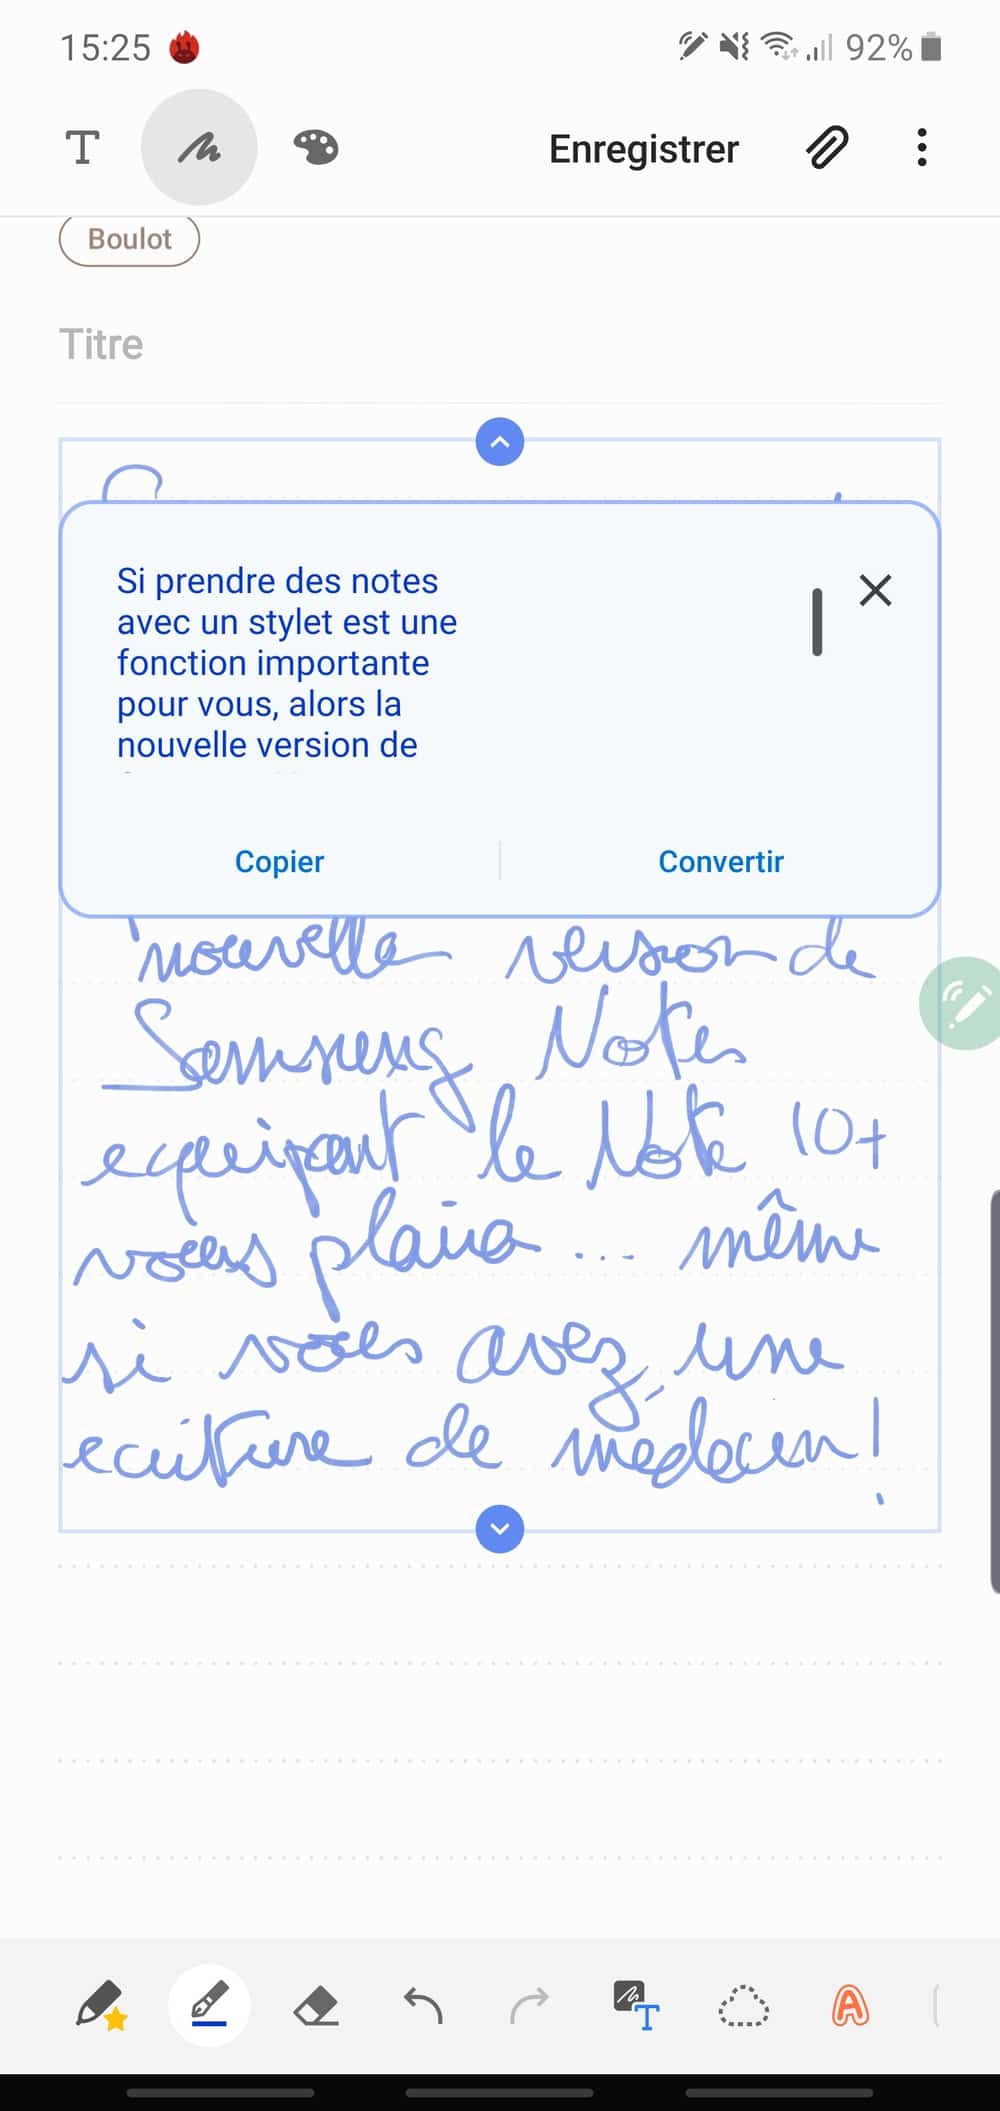 15:25
92%
T
Enregistrer
Boulot
Titre
Si prendre des notes
avec un stylet est une
fonction importante
pour vous, alors la
nouvelle version de
Copier
Convertir
nouvelle version de
Samsung Notes
equipant le Note 10+
vous plaira... même
si vous avez une
ecriture de medecin!
T
A